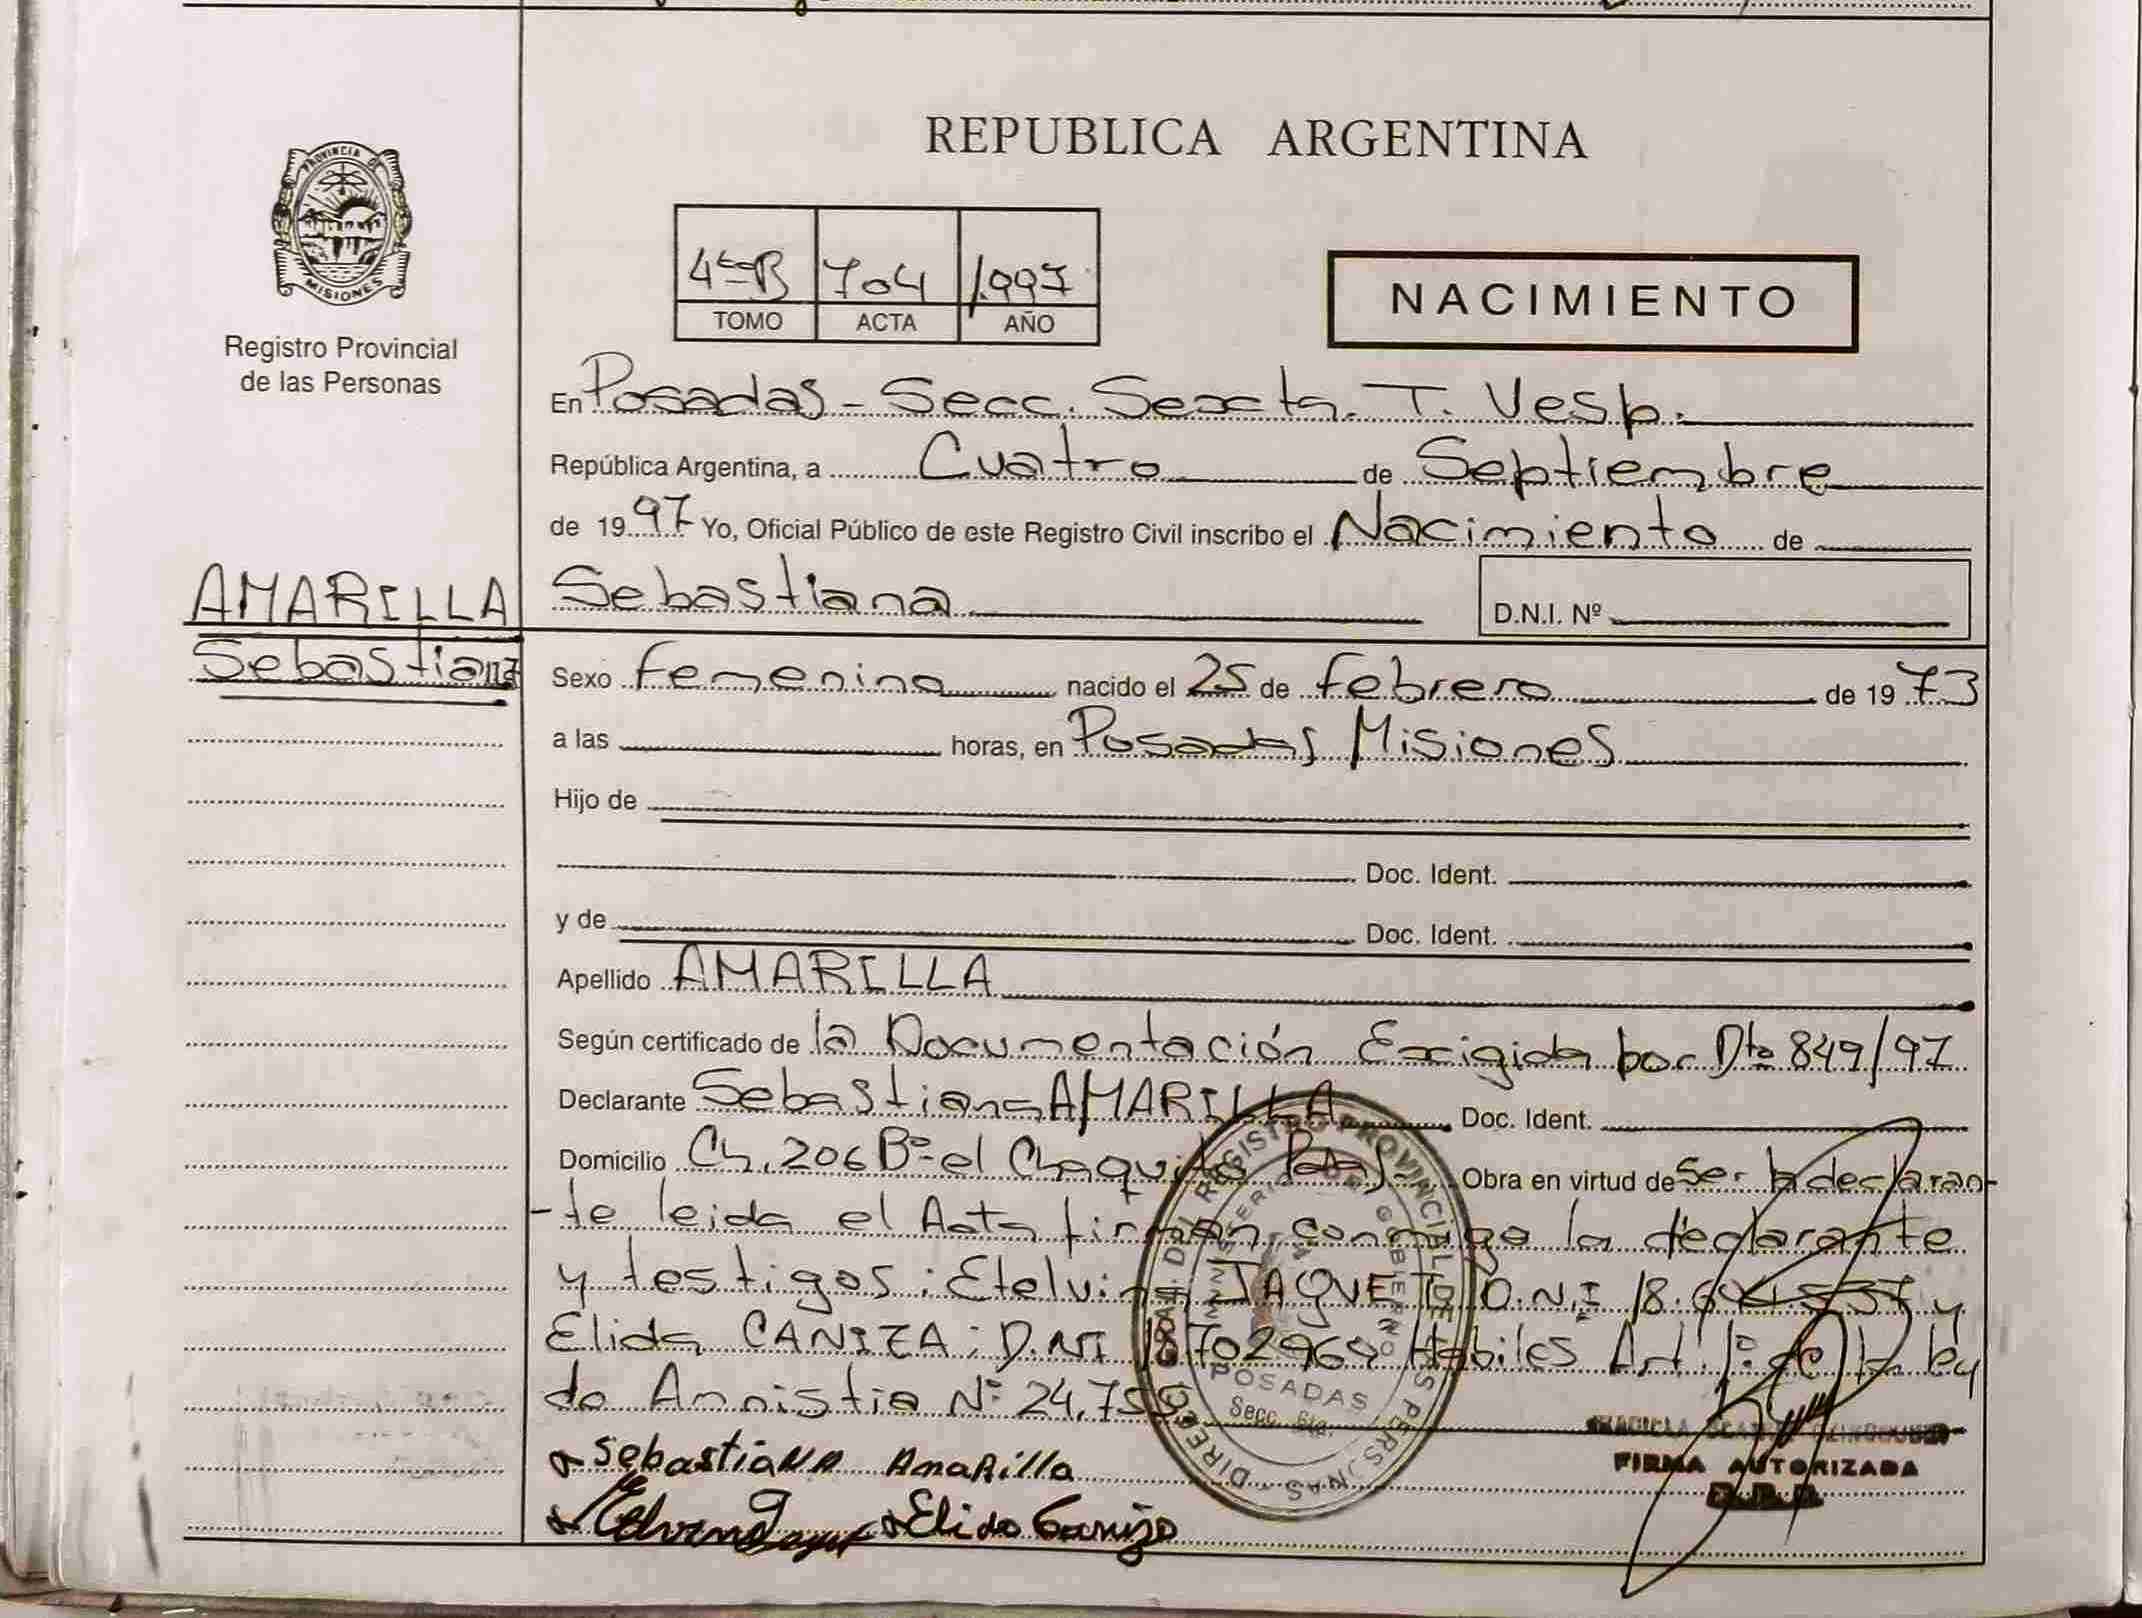 REPUBLICA ARGENTINA
PROVINCIA DE
MISIONES
Registro Provincial
de las Personas
4to B 704 1.997
TOMO ACTA AÑO
NACIMIENTO
En Posadas - Secc. Sexta. T. Vesp.
República Argentina, a Cuatro de Septiembre
de 1997 Yo, Oficial Público de este Registro Civil inscribo el Nacimiento de
AMARILLA
Sebastiana
Sebastiana D.N.I. Nº
Sexo Femenino nacido el 25 de Febrero de 1973
a las horas, en Posadas Misiones
Hijo de
Doc. Ident.
y de Doc. Ident.
Apellido AMARILLA
Según certificado de la Documentación Exigida por Dto 849/97
Declarante Sebastiana AMARILLA Doc. Ident.
Domicilio Ch. 206 Bº el Chaquito Pdas. Obra en virtud de ser la declaran-
-te leida el Acta firman conmigo la declarante
y testigos: Etelvina JAQUET D.N.I 18. y
Elida CANIZA: D.NI 18702969 Habiles Art. 1º de la ley
de Amnistia Nº 24.755
Sebastiana Amarilla
Elida Caniza
DIRECC. GRAL. DEL REGISTRO PROVINCIAL DE LAS PERSONAS
MINISTERIO DE GOBIERNO
POSADAS
Secc. 6ta.
FIRMA AUTORIZADA